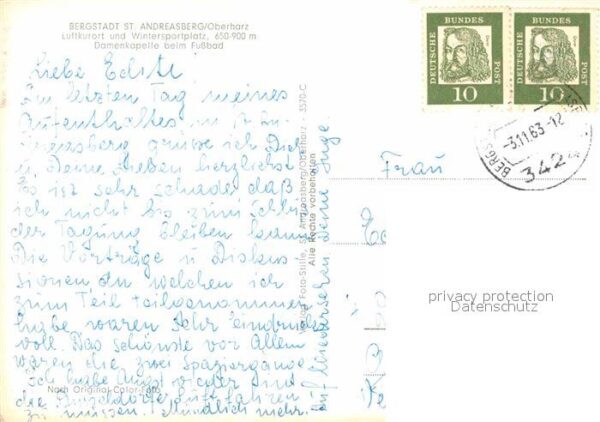 BERGSTADT ST. ANDREASBERG/Oberharz
Luftkurort und Wintersportplatz, 650-900 m
Damenkapelle beim Fußbad
Liebe Edith!
Am letzten Tag meines
Aufenthaltes in St. An-
dreasberg grüsse ich Dich
u. Deine Lieben herzlichst
Es ist sehr schade daß
ich nicht bis zum Schluß
der Tagung bleiben kann
Die Vorträge u. Diskus-
sionen, an welchen ich
zum Teil teilgenommen
habe, waren sehr eindrucks
voll. Das schönste vor Allem
waren die zwei Spaziergänge
Ich habe Angst wieder
die fahren
zu müssen. Mündlich mehr.
Auf Wiedersehen Deine Inge
Nach Original-Color-Foto
Foto-Stille, St. Andreasberg/Oberharz 3570-C
Alle Rechte vorbehalten
DEUTSCHE
BUNDES
POST
10
DEUTSCHE
BUNDES
POST
10
-3.11.63-12
3424
Frau
privacy protection
Datenschutz